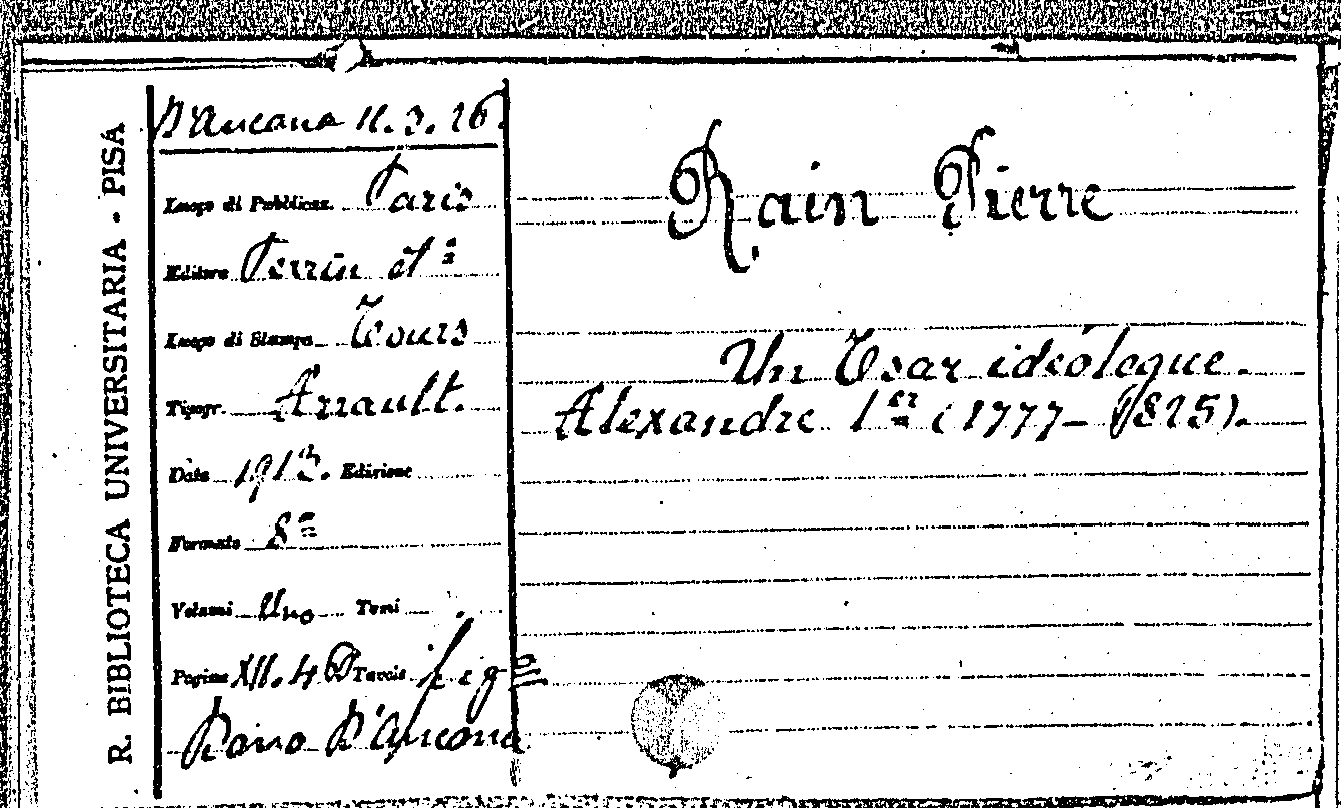 R. BIBLIOTECA UNIVERSITARIA - PISA
D'Ancona 11.3.26.
Luogo di Pubblicaz. Paris
Editore Perrin et
Luogo di Stampa Tours
Tipogr. Arrault.
Data 1913. Edizione
Formato 8º
Volumi Uno Tomi
Pagine XII. 4 Tavole fig
Dono D'Ancona
Rain Pierre
Un Tsar idéologue.
Alexandre 1er (1777-1825).